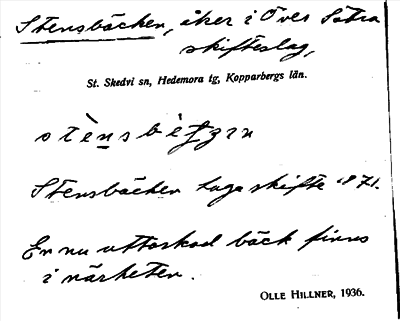 Stensbäcken, åker i Över Sätra
skifteslag,
St. Skedvi sn, Hedemora tg, Kopparbergs län.
Stensbäcken laga skifte 1871.
En nu uttorkad bäck finns
i närheten.
OLLE HILLNER, 1936.